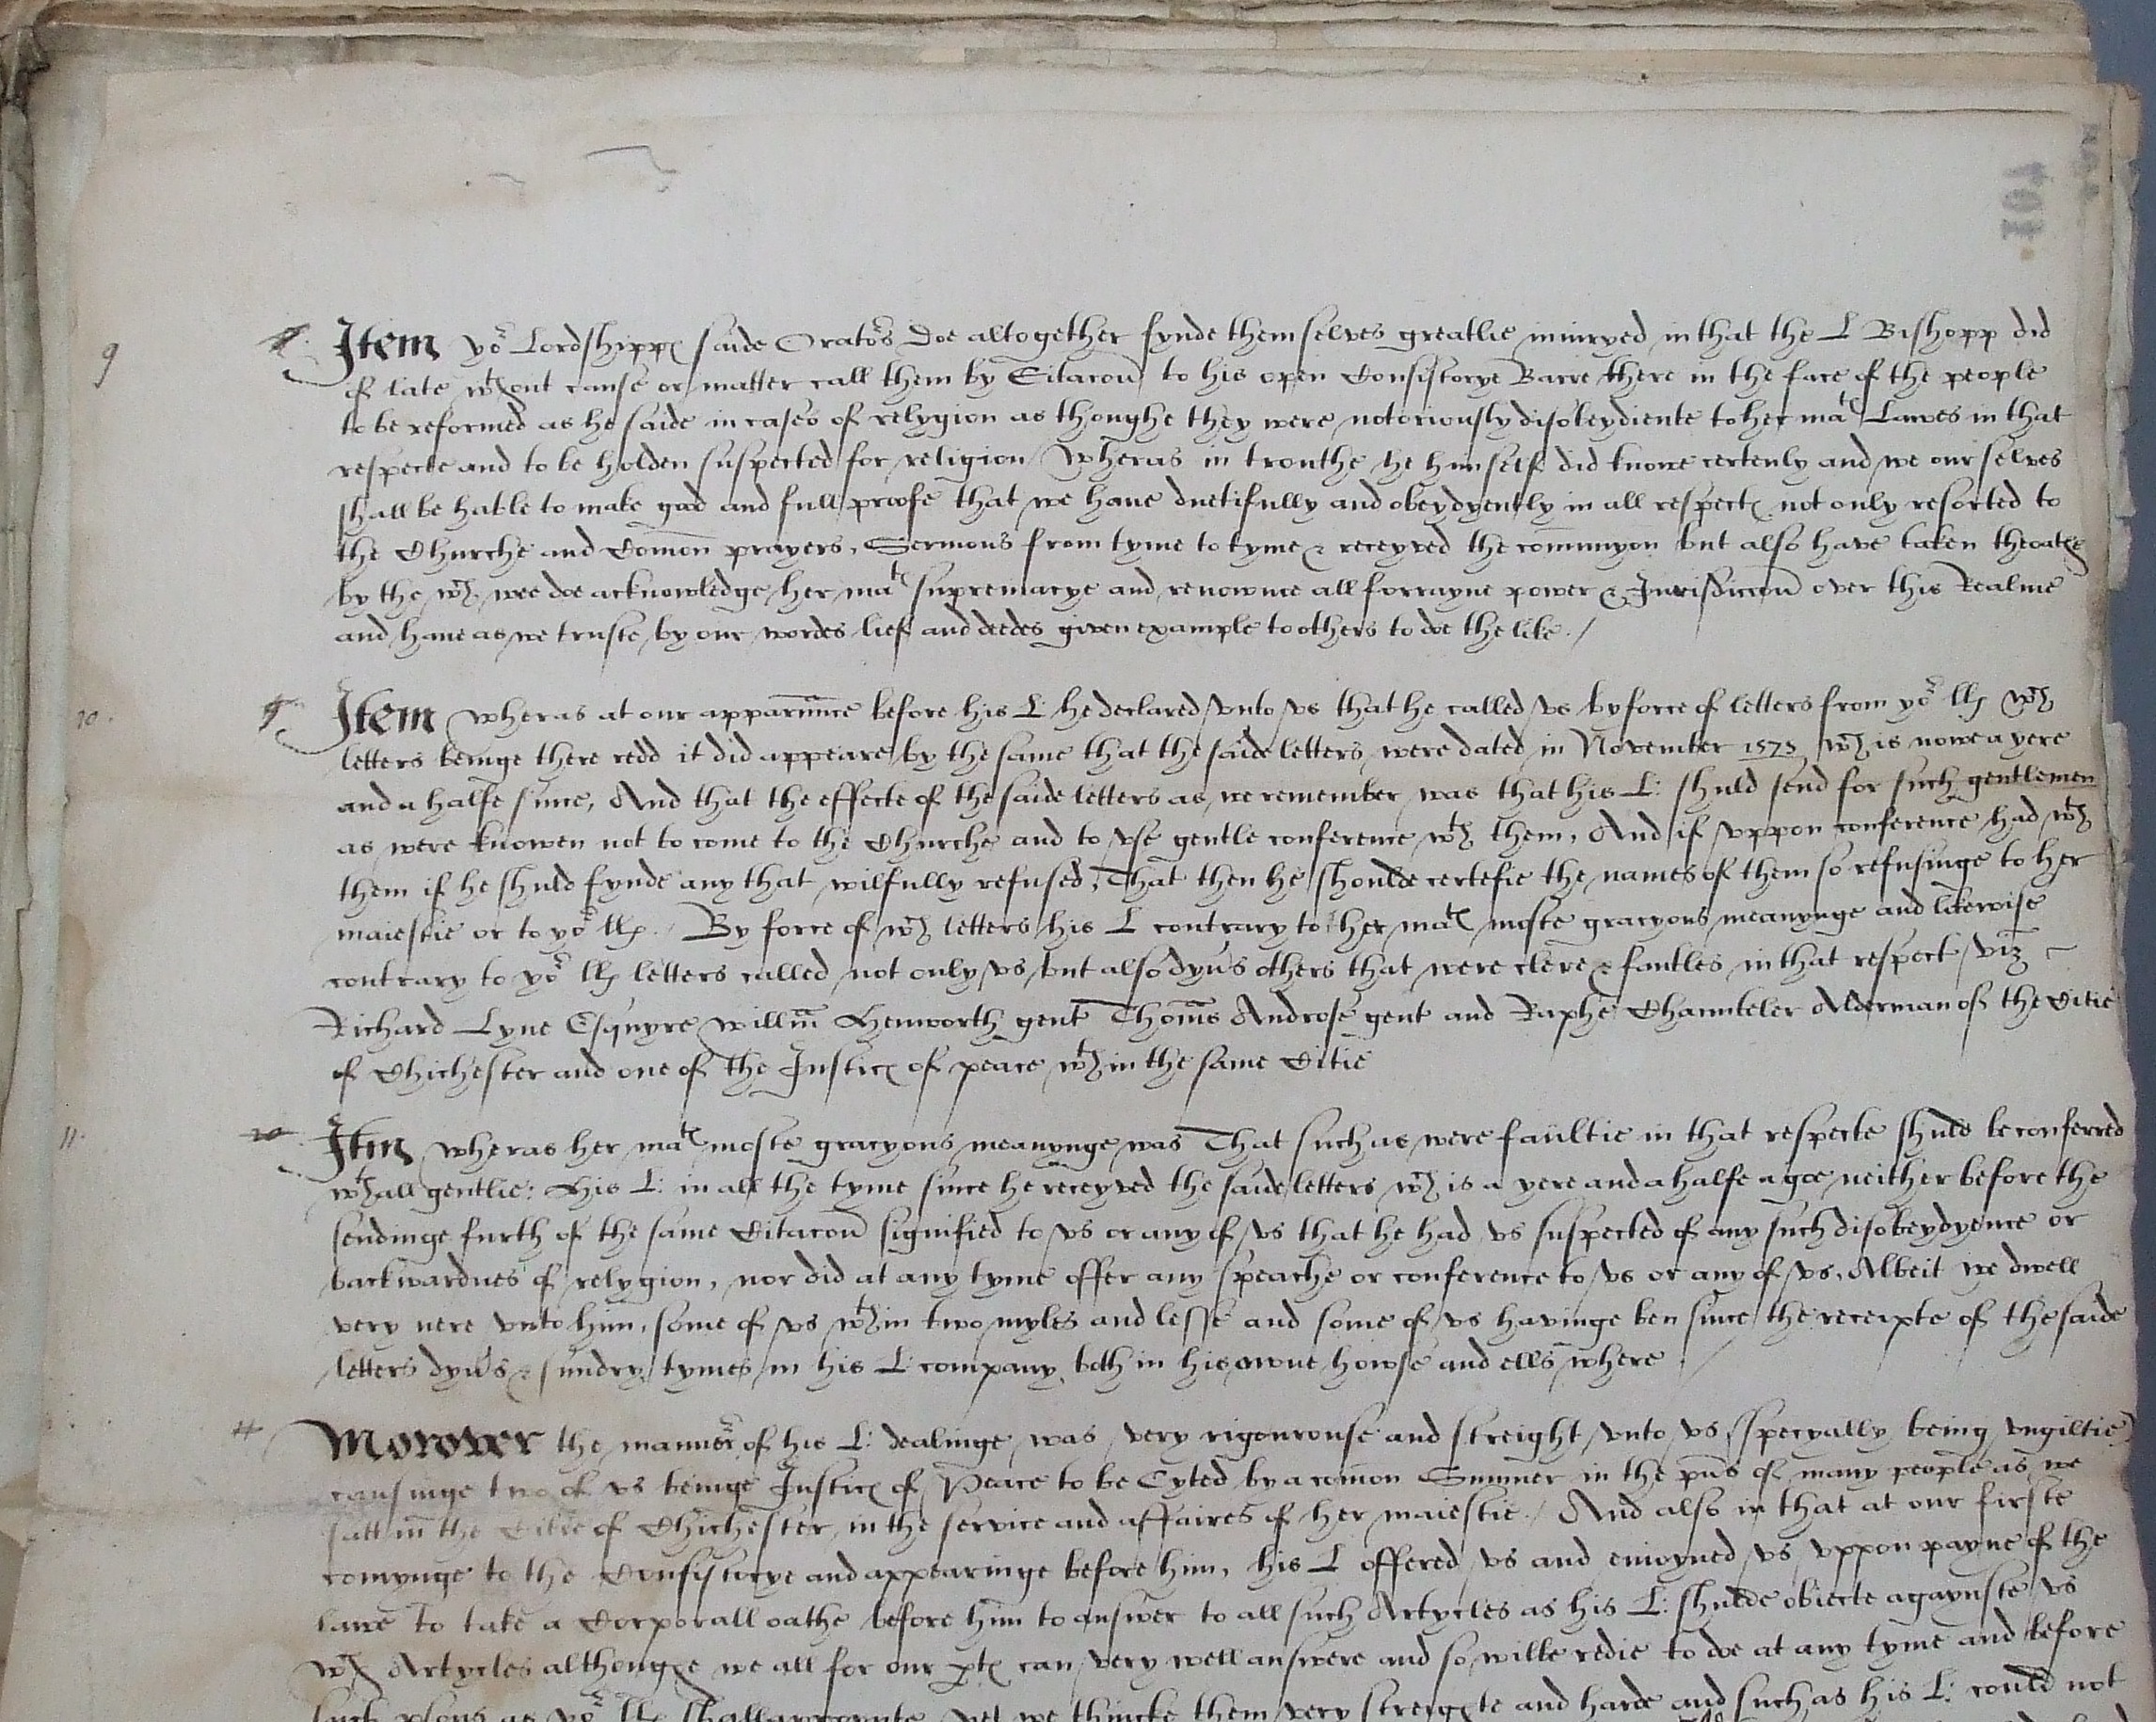 9 8. Item yor Lordshippes saide Orators doe altogether fynde themselves greatlie iniuryed in that the L Bishopp did
of late wthout cause or matter call them by Citacon to his open Consistorye Barre there in the face of the people
to be reformed as he saide in cases of relygion as thoughe they were notoriously disobeydiente to her mates Lawes in that
respecte and to be holden suspected for religion / Wheras in trouthe he himself did knowe certenly and we our selves
shall be hable to make good and full proofe that we haue duetifully and obeydyently in all respectes not only resorted to
the Churche and Comon prayers, Sermons from tyme to tyme & receyved the comunyon but also have taken the oathe
by the wch wee doe acknowledge her mates supremacye and renownce all forrayne power & Jurisdiccon over this Realme
and haue as we truste by our wordes lief and deedes given example to others to doe the like . /
10. 9. Item wheras at our apparunce before his L: he declared vnto vs that he called vs by force of letters from yor llp wch
letters beinge there redd it did appeare by the same that the saide letters were dated in November 1575 wch is nowe a yere
and a halfe since, And that the effecte of the saide letters as we remember was that his L: shuld send for such gentlemen
as were knowen not to come to the Churche and to vse gentle conference wth them, And if vppon conference had wth
them if he shuld fynde any that wilfully refused, That then he shoulde certefie the names of them so refusinge to her
maiestie or to yor llp. / By force of wch letters his L contrary to her mates moste gracyous meanynge and likewise
contrary to yor llp letters called not only vs but also dyvs others that were clere & fautles in that respect / viz
Richard Lyne Esquyre Willm Henworth gent Thoms Androse gent and Raphe Chaunteler Alderman of the Citie
of Chichester and one of the Justices of peace wthin the same Citie
11. 10. Itm wheras her mates moste gracyous meanynge was That such as were faultie in that respecte shuld be conferred
wthall gentlie: His L: in all the tyme since he receyved the saide letters wch is a yere and a halfe agoe neither before the
sendinge furth of the same Citacon signified to vs or any of vs that he had vs suspected of any such disobeydyence or
backwardnes of relygion, nor did at any tyme offer any speache or conference to vs or any of vs, Albeit we dwell
very nere vnto him, some of vs wthin two myles and lesse and some of vs havinge ben since the receipte of the saide
letters dyvs & sundry tymes in his L: company both in his owne howse and ells where . /
11 Morover the manner of his L: dealinge was very rigourouse and streight vnto vs (specyally being vngiltie)
causinge two of vs beinge Justices of Peace to be Cyted by a comon Sumner in the pns of many people as we
satt in the Citie of Chichester in the service and affaires of her maiestie. / And also in that at our firste
comynge to the Consistorye and appearinge before him, his L offered vs and enioyned vs vppon payne of the
lawe to take a Corporall oathe before him to answer to all such Artycles as his L: shulde obiecte agaynste vs
wch Artycles althoughe we all for our ptes can very well answere and so wilbe redie to doe at any tyme and before
such psons as yor llp shall yet we thincke them very streighte and harde and such as his L: could not